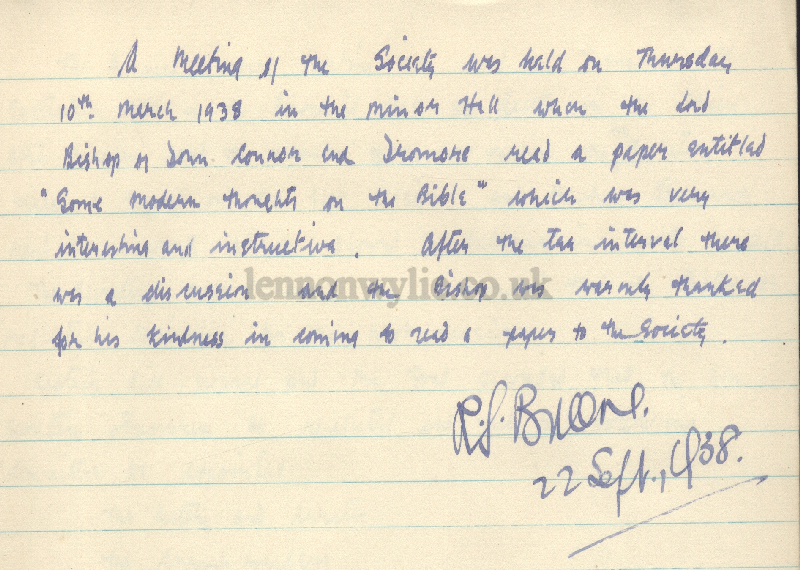 A Meeting of the Society was held on Thursday
10th. March 1938 in the Minor Hall when the Lord
Bishop of Down Connor and Dromore read a paper entitled
"Some Modern thoughts on the Bible" which was very
interesting and instructive. After the tea interval there
was a discussion and the Bishop was warmly thanked
for his kindness in coming to read a paper to the Society.
lennonwylie.co.uk
R.S.
22 Sept., 1938.